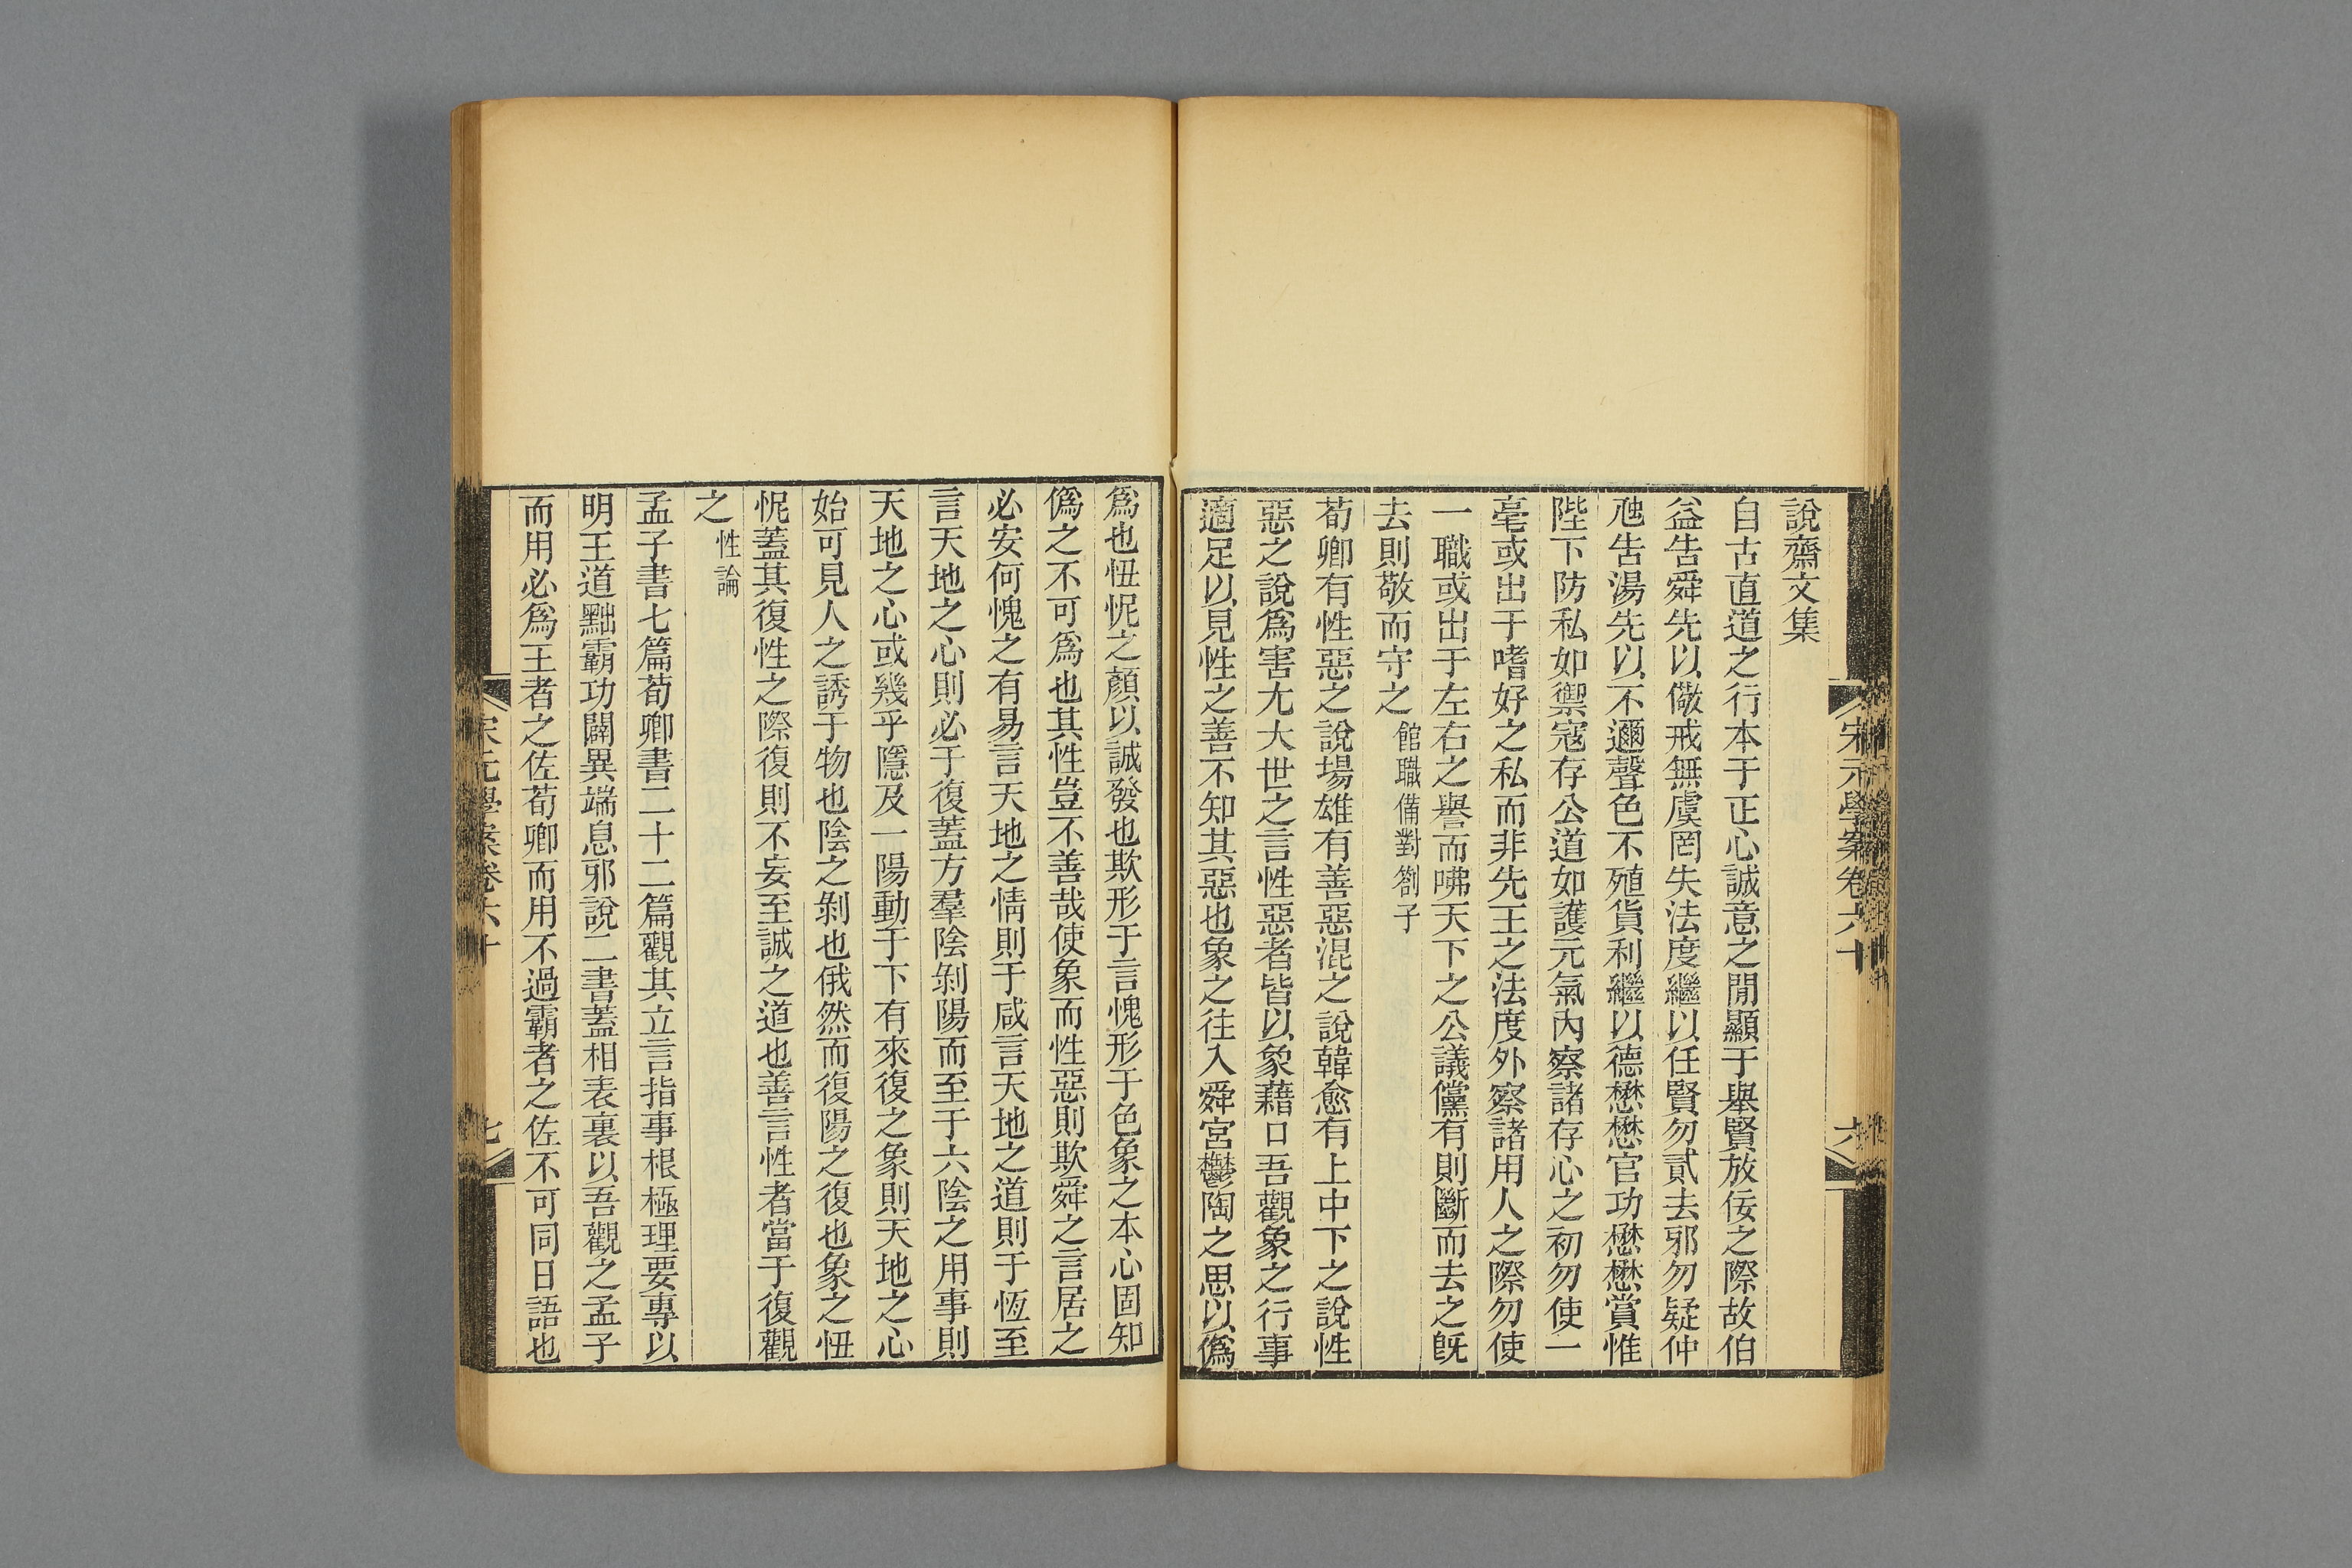 宋元學案卷六十
六
說齋文集
自古直道之行本于正心誠意之閒顯于舉賢放佞之際故伯
益告舜先以儆戒無虞罔失法度繼以任賢勿貳去邪勿疑仲
虺告湯先以不邇聲色不殖貨利繼以德懋懋官功懋懋賞惟
陛下防私如禦寇存公道如護元氣內察諸存心之初勿使一
毫或出于嗜好之私而非先王之法度外察諸用人之際勿使
一職或出于左右之譽而咈天下之公議儻有則斷而去之旣
去則敬而守之館職備對劄子
荀卿有性惡之說場雄有善惡混之說韓愈有上中下之說性
惡之說爲害尢大世之言性惡者皆以象藉口吾觀象之行事
適足以見性之善不知其惡也象之往入舜宮鬱陶之思以僞
爲也忸怩之顏以誠發也欺形于言愧形于色象之本心固知
僞之不可爲也其性豈不善哉使象而性惡則欺舜之言居之
必安何愧之有易言天地之情則于咸言天地之道則于恆至
言天地之心則必于復蓋方羣陰剝陽而至于六陰之用事則
天地之心或幾乎隱及一陽動于下有來復之象則天地之心
始可見人之誘于物也陰之剝也俄然而復陽之復也象之忸
怩蓋其復性之際復則不妄至誠之道也善言性者當于復觀
之性論
孟子書七篇荀卿書二十二篇觀其立言指事根極理要專以
明王道黜霸功闢異端息邪說二書蓋相表裏以吾觀之孟子
而用必爲王者之佐荀卿而用不過霸者之佐不可同日語也
宋元學案卷六十
七